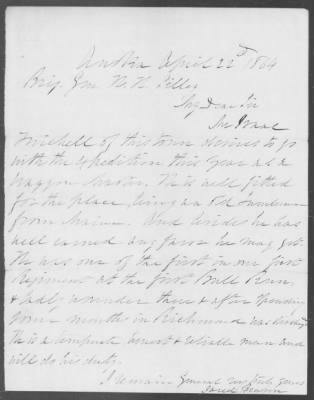 Austin April 22d 1864
Brig. Gen
My Dear Sir
Mr Isaac
Mitchell of this town desires to go
with the expedition this year as a
waggon Master. He is well fitted
for the place, being an old lumberman
from Maine. And besides he has
well earned any favor he may get.
He was one of the first in our first
Regiment at the first Bull Run.
& badly wounded there & after spending
some months in Richmond was
He is a temperate honest & reliable man and
will do his duty.
I remain General very truly yours